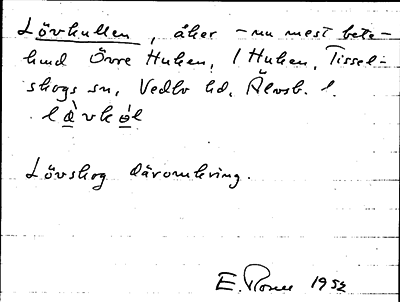 Lövkullen, åker - nu mest bete-
Hud Övre Huken, / Huken, Tissel-
skogs sn, Vedbo hd, Älvsb. l.
l ò̱ v k ó̱ l
Lövskog däromkring.
E. 1952